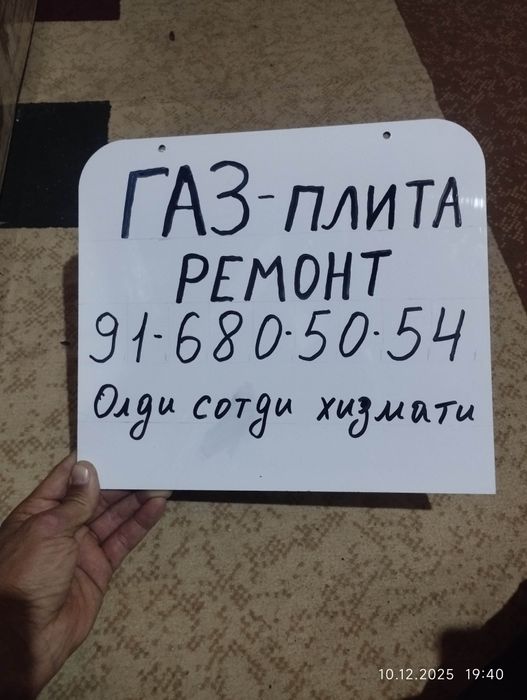 ГАЗ-ПЛИТА
РЕМОНТ
91-680-50-54
Олди сотди хизмати
10.12.2025 19:40